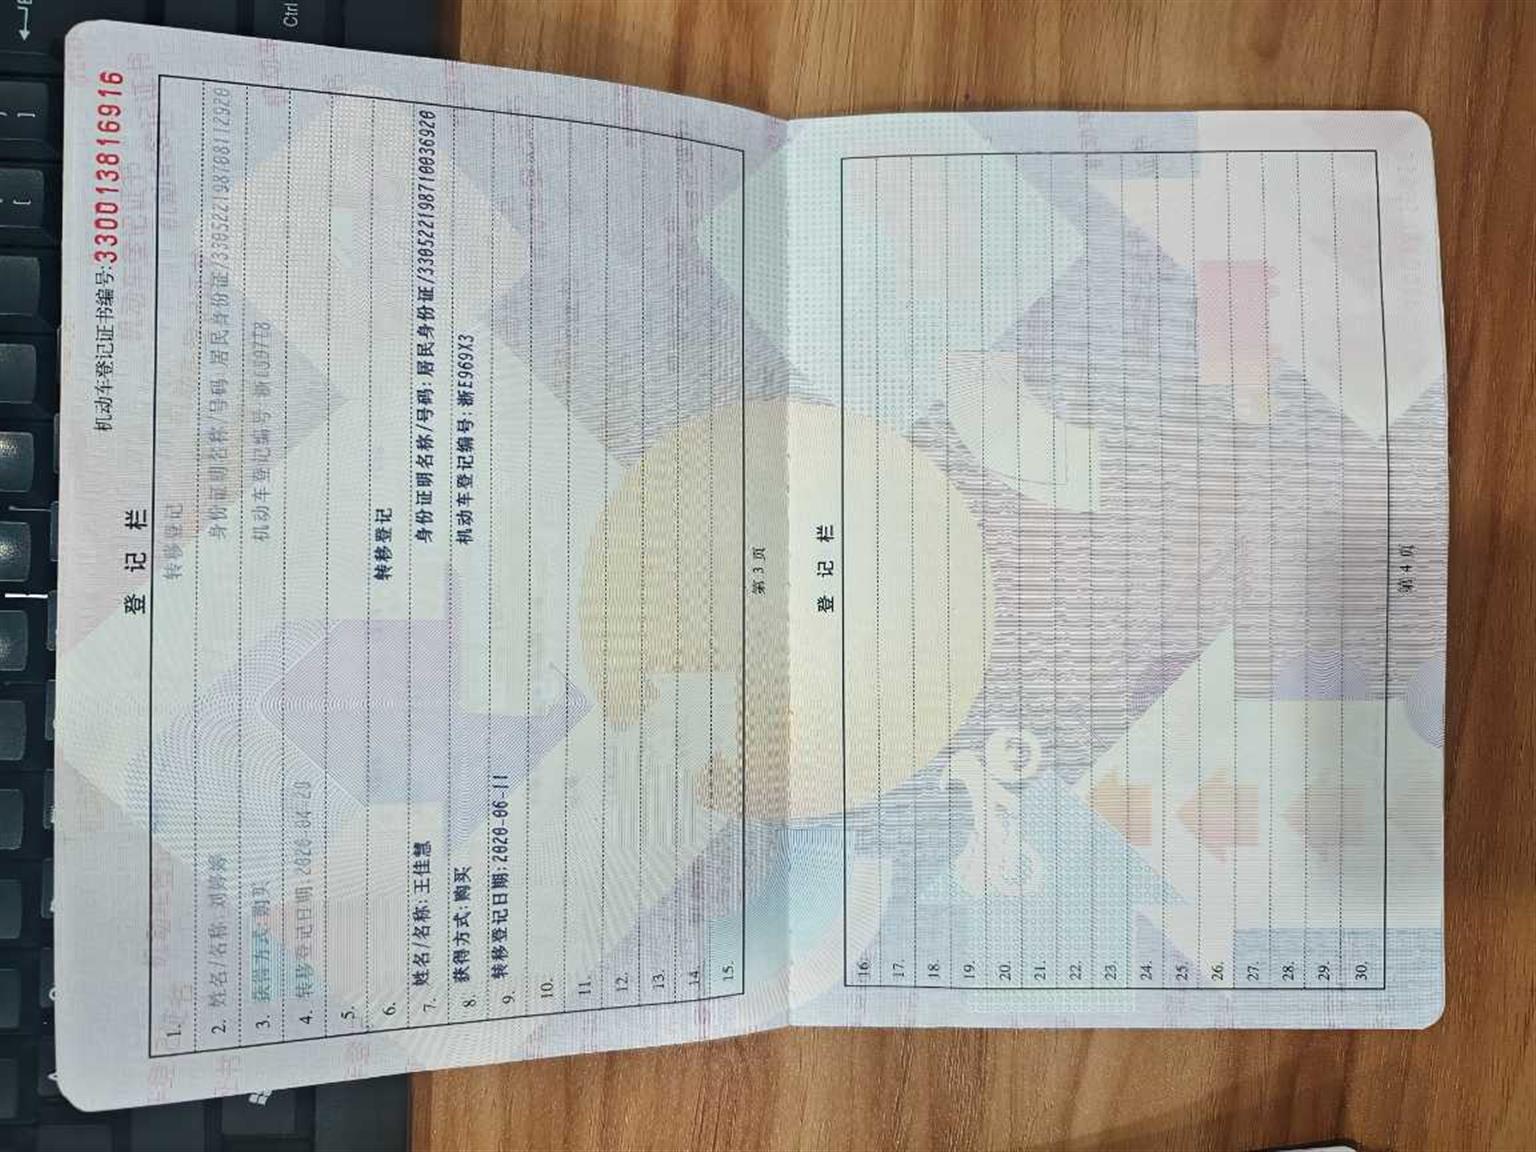 机动车登记证书编号:330013816916
登 记 栏
1. 转移登记
2. 姓名/名称 刘婷婷 身份证明名称/号码 居民身份证/330522198708112920
3. 获得方式:购买 机动车登记编号
4. 转移登记日期:2020-04-20
5.
6. 转移登记
7. 姓名/名称:王佳慧 身份证明名称/号码:居民身份证/330522198710036920
8. 获得方式:购买 机动车登记编号:浙E969X3
9. 转移登记日期:2020-06-11
10.
11.
12.
13.
14.
15.
第 3 页
登 记 栏
16.
17.
18.
19.
20.
21.
22.
23.
24.
25.
26.
27.
28.
29.
30.
第 4 页